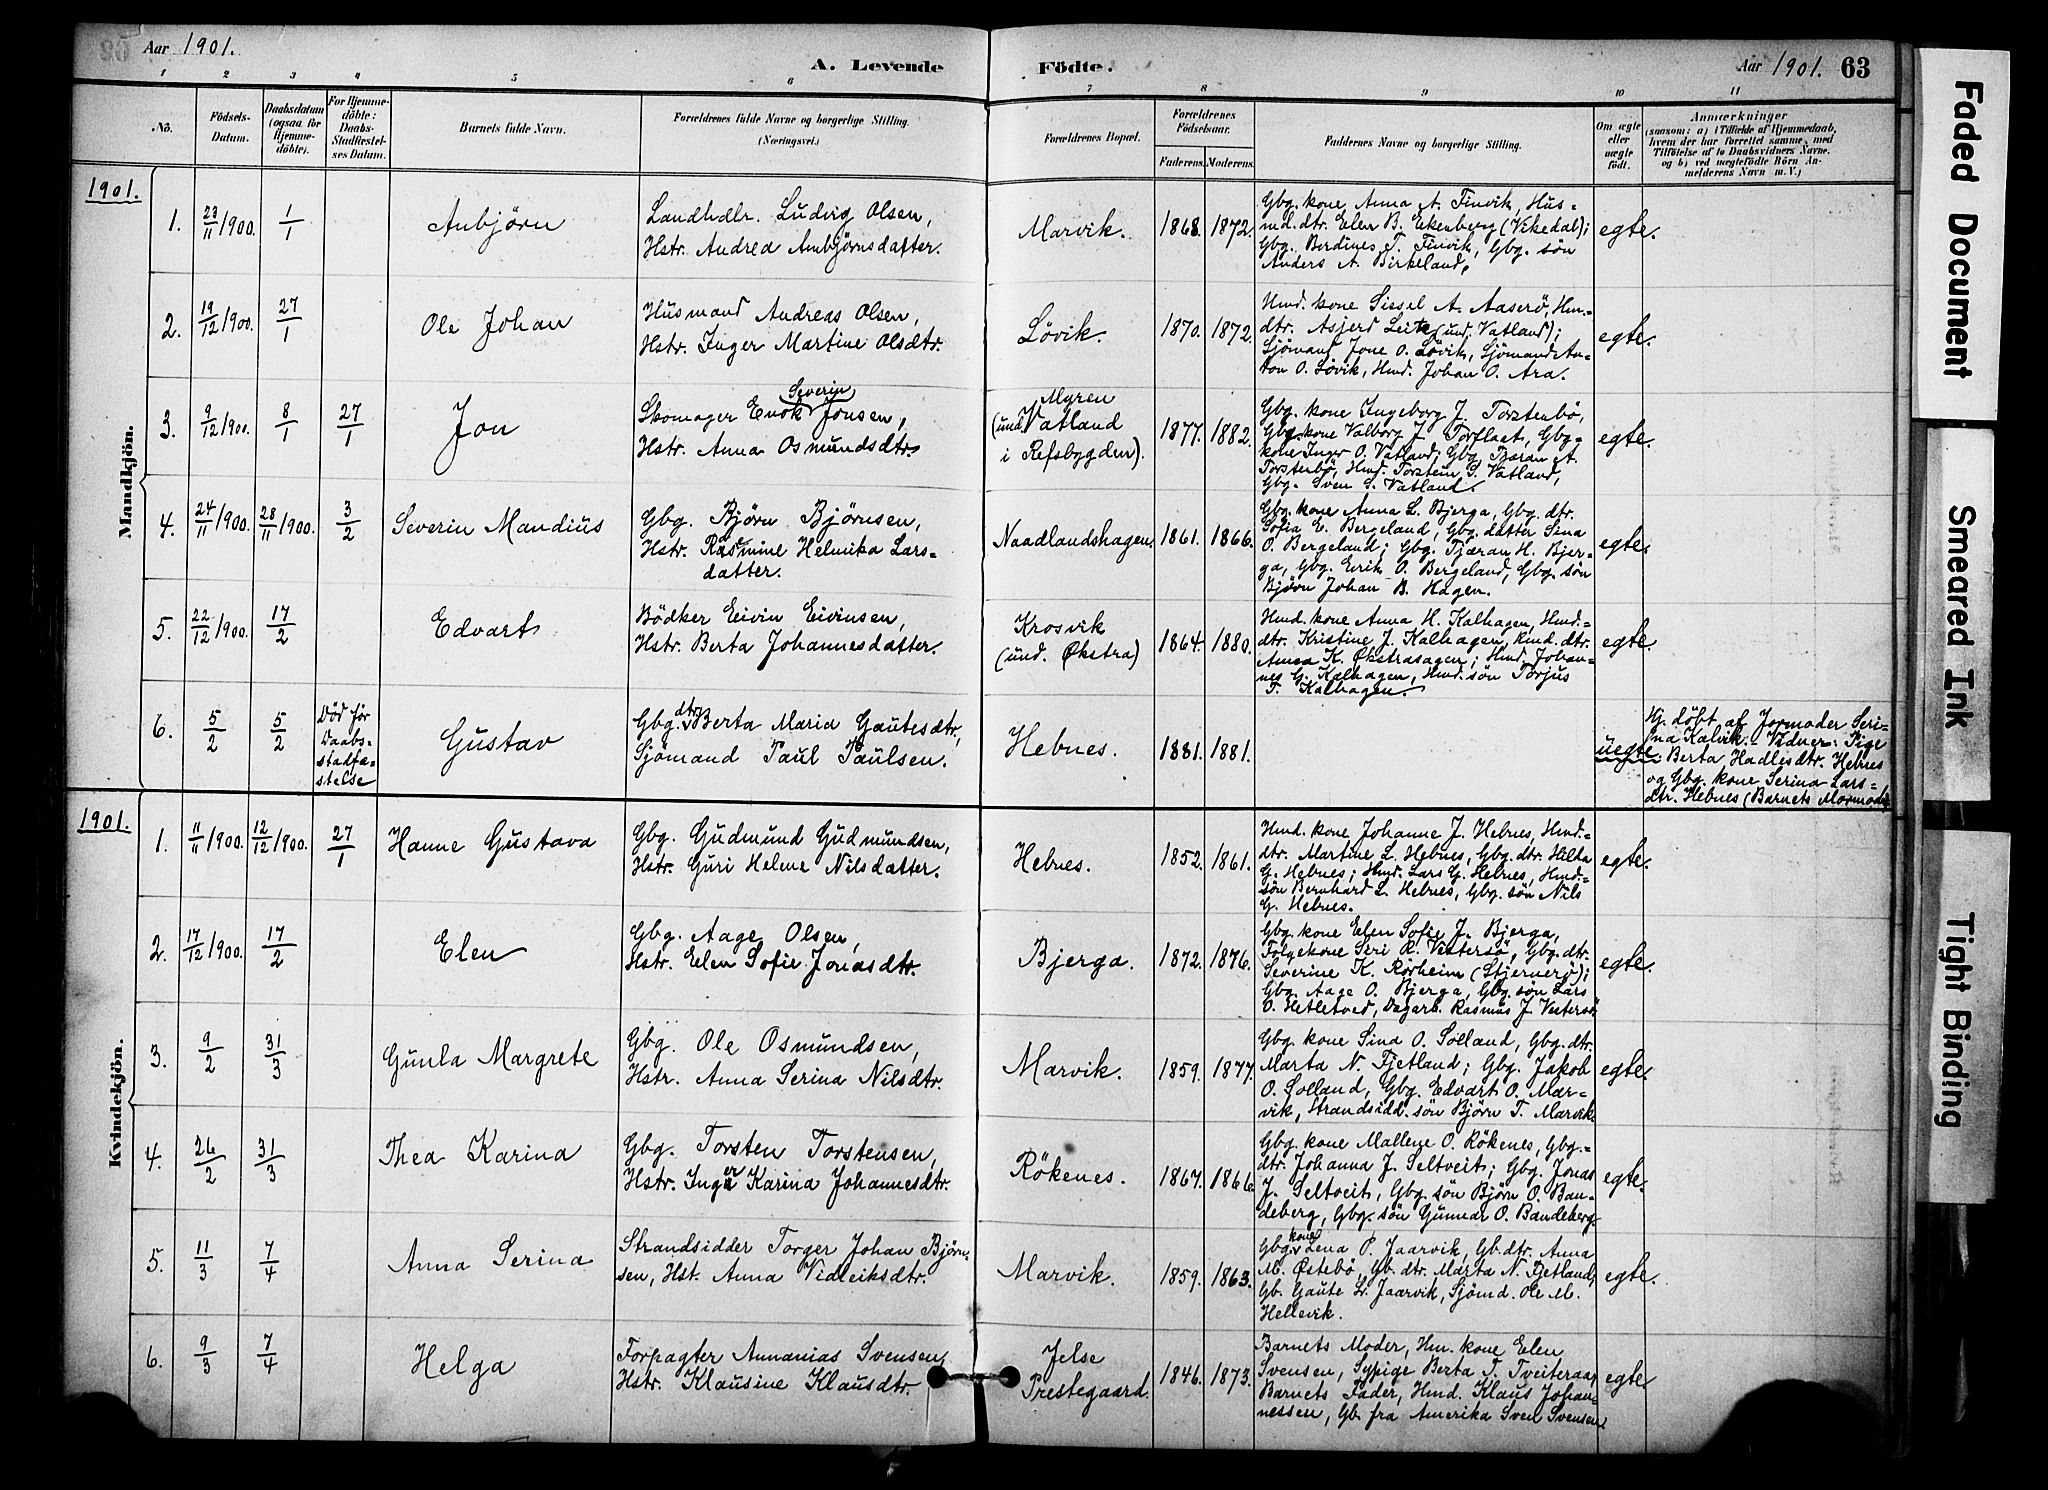 Aar 1901.
A. Levende Födte.
Aar 1901. 63
1 2 3 4 5 6 7 8 9 10 11
No.
Födsels-
Datum.
Daabsdatum
(ogsaa for
Hjemme-
döbte).
For Hjemme-
döbte:
Daabs-
Stadfæstel-
ses Datum.
Barnets fulde Navn.
Forældrenes fulde Navne og borgerlige Stilling.
(Næringsvei.)
Forældrenes Bopæl.
Forældrenes
Födselsaar.
Faderens. Moderens.
Faddernes Navne og borgerlige Stilling.
Om ægte
eller
uægte
födt.
Anmærkninger
(saasom: a) i Tilfælde af Hjemmedaab,
hvem der har forrettet samme, med
Tilföielse af to Daabsvidners Navne,
og b) ved uægtefödte Börn An-
melderens Navn m. V.)
Mandkjön.
1901.
1. 23/11 1900. 1/1
Anbjörn
Landhdlr. Ludvig Olsen,
Hstr. Andrea Ambjörnsdatter.
Marvik.
1868. 1872.
Gbg. kone Anna A. Finvik, Hus-
md. dtr. Elen B. Ekenberg (Vikedal);
Gbg. Berdines T. Finvik, Gbg. sön
Anders A. Birkeland.
egte.
2. 19/12 1900. 27/1
Ole Johan
Husmand Andreas Olsen,
Hstr. Inger Martine Olsdtr.
Lövik.
1870. 1872.
Hmd. kone Sissel A. Aaserö, Hm.-
dtr. Asjerd Leite (und. Vatland);
Sjömand Jone O. Lövik, Sjömand An-
ton O. Lövik, Hmd. Johan O. Ara.
egte.
3. 9/12 1900. 8/1 27/1
Jon
Severin
Skomager Enok Jonsen,
Hstr. Anna Osmundsdtr.
Myren
(und. Vatland
i Refsbygden).
1877. 1882.
Gbg. kone Ingeborg J. Torstenbö,
Gbg. kone Valborg J. Torflaat, Gbg-
kone Inger O. Vatland; Gbg. Tjæran A.
Torstenbö, Hmd. Torstein S. Vatland,
Gbg. Sven S. Vatland.
egte.
4. 24/11 1900. 28/11 1900. 3/2
Severin Mandius
Gbg. Björn Björnsen,
Hstr. Rasmine Helmika Lars-
datter.
Naadlandshagen.
1861. 1866.
Gbg. kone Anna L. Bjerga, Gbg. dtr.
Sofia E. Bergeland, Gbg. datter Sina
O. Bergeland; Gbg. Tjæran H. Bjer-
ga, Gbg. Eirik O. Bergeland, Gbg. sön
Björn Johan B. Hagen.
egte.
5. 22/12 1900. 17/2
Edvart
Bödker Eivin Eivinsen,
Hstr. Berta Johannesdatter.
Krosvik
(und. Økstra)
1864. 1880.
Hmd. kone Anna H. Kalhagen, Hmd.-
dtr. Kristine J. Kalhagen, Hmd. dtr.
Anna K. Økstrasagen; Hmd. Johan-
nes G. Kalhagen, Hmd. sön Torjus
T. Kalhagen.
egte.
6. 5/2 5/2
Död för
Daabs-
stadfæ-
stelse
Gustav
Gbg. dtr. Berta Maria Gautesdtr,
Sjömand Paul Paulsen.
Hebnes.
1881. 1881.
uegte
Hj. döbt af Jormoder Seri-
na Kalvik. Vidner: Pige
Berta Hadlesdtr. Hebnes
og Gbg. kone Serina Lars-
dtr. Hebnes (Barnets Mormoder)
Kvindekjön.
1901.
1. 11/11 1900. 12/12 1900. 27/1
Hanne Gustava
Gbg. Gudmund Gudmundsen,
Hstr. Guri Helene Nilsdatter.
Hebnes.
1852. 1861.
Hmd. kone Johanne J. Hebnes, Hmd.-
dtr. Martine L. Hebnes, Gbg. dtr. Hilda
G. Hebnes; Hmd. Lars G. Hebnes, Hmd.-
sön Bernhard L. Hebnes, Gbg. sön Nils
G. Hebnes.
egte.
2. 17/12 1900. 17/2
Elen
Gbg. Aage Olsen,
Hstr. Elen Sofie Jonasdtr.
Bjerga.
1872. 1876.
Gbg. kone Elen Sofie J. Bjerga,
Folgekone Seri R. Vestersö, Gbg. dtr.
Severine K. Rörheim (Stjernerö);
Gbg. Aage O. Bjerga, Gbg. sön Lars
O. Hetletved, Dagarb. Rasmus J. Vestersö
egte.
3. 9/2 31/3
Gunla Margrete
Gbg. Ole Osmundsen,
Hstr. Anna Serina Nilsdtr.
Marvik.
1859. 1877.
Gbg. kone Sina O. Solland, Gbg. dtr.
Marta N. Fjetland; Gbg. Jakob
O. Solland, Gbg. Edvart O. Mar-
vik, Strandsidd. sön Björn T. Marvik
egte.
4. 26/2 31/3
Thea Karina
Gbg. Torsten Torstensen,
Hstr. Inger Karina Johannesdtr.
Rökenes.
1867. 1866.
Gbg. kone Mallene O. Rökenes, Gbg.-
dtr. Johanna J. Seltveit; Gbg. Jonas
J. Seltveit, Gbg. sön Björn O. Ban-
deberg, Gbg. sön Gunnar O. Bandeberg
egte.
5. 11/3 7/4
Anna Serina
Strandsidder Torger Johan Björn-
sen, Hst. Anna Vidleiksdtr.
Marvik.
1859. 1863.
Gbg. kone Lena P. Jaarvik, Gb. dtr. Anna
M. Østebö, Gb. dtr. Marta N. Fjetland,
Gb. Gaute Sv. Jaarvik, Sjömd. Ole M.
Hellevik.
egte.
6. 9/3 7/4
Helga
Forpagter Annanias Svensen,
Hstr. Klausine Klausdtr.
Jelse
Prestegaard.
1846. 1873.
Barnets Moder, Hm. kone Elen
Svensen, Sypige Berta T. Tveiteraas,
Barnets Fader, Hmd. Klaus Johan-
nessen, Gb. fra Amerika Sven Svensen
egte.
Faded Document
Smeared Ink
Tight Binding